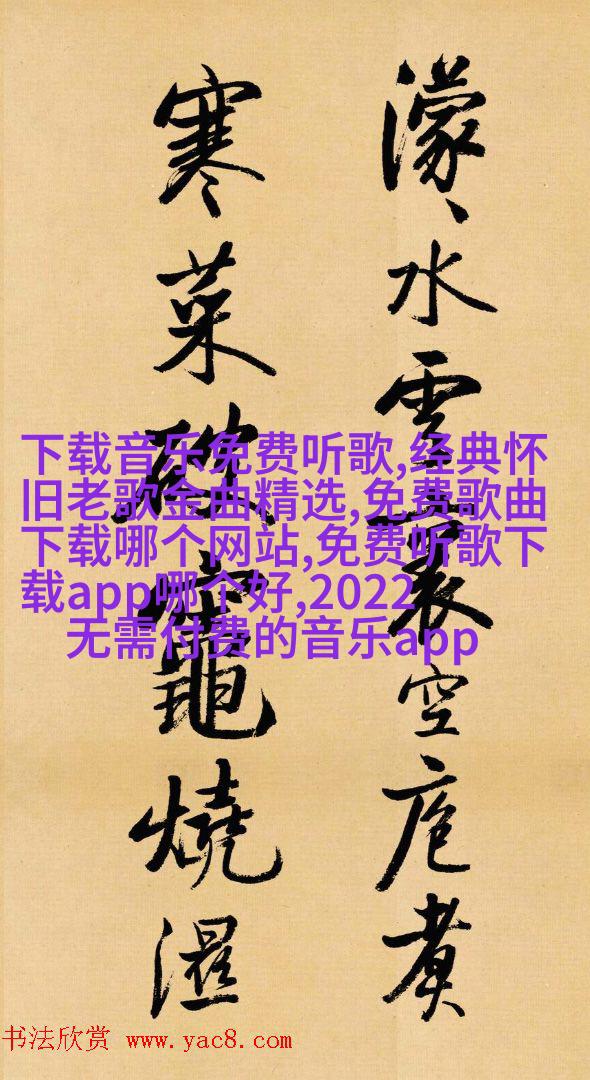 濛〻水雲裏空庖煮
寒菜破竈燒濕
下载音乐免费听歌,经典怀
旧老歌金曲精选,免费歌曲
下载哪个网站,免费听歌下
载app哪个好,2022
无需付费的音乐app
书法欣赏 www.yac8.com